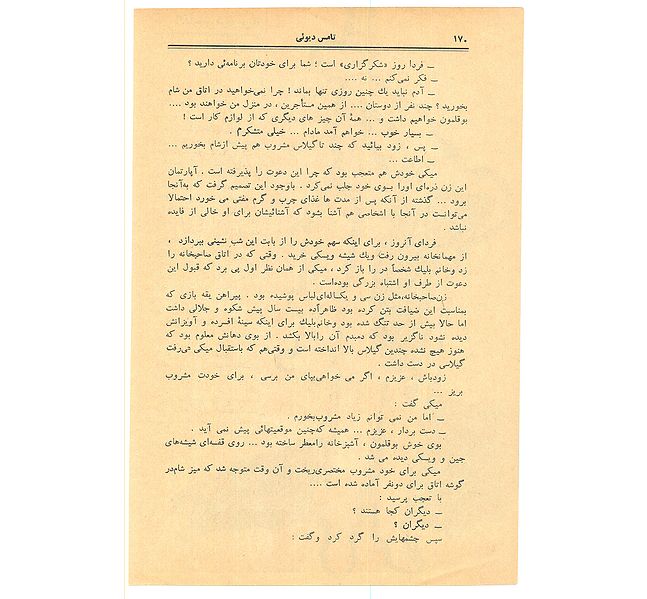 ۱۷۰
تامس دیوئی
ــ فردا روز «شکرگزاری» است ؛ شما برای خودتان برنامه‌ئی دارید ؟
ــ فکر نمی‌کنم ... نه ....
ــ آدم نباید یك چنین روزی تنها بماند ! چرا نمی‌خواهید در اتاق من شام
بخورید ؟ چند نفر از دوستان .... از همین مستأجرین ، در منزل من خواهند بود ....
بوقلمون خواهیم داشت و ... همهٔ آن چیز های دیگری که از لوازم کار است !
ــ بسیار خوب ... خواهم آمد مادام ... خیلی متشکرم .
ــ پس ، زود بیائید که چند تا گیلاس مشروب هم پیش ازشام بخوریم ...
ــ اطاعت ...
میکی خودش هم متعجب بود که چرا این دعوت را پذیرفته است . آپارتمان
این زن ذره‌ای اورا بسوی خود جلب نمی‌کرد . باوجود این تصمیم گرفت که به‌آنجا
برود ... گذشته از آنکه پس از مدت ها غذای چرب و گرم مفتی می خورد احتمالا
می‌توانست در آنجا با اشخاصی هم آشنا بشود که آشنائیشان برای او خالی از فایده
نباشد .
فردای آنروز ، برای اینکه سهم خودش را از بابت این شب نشینی بپردازد ،
از مهمانخانه بیرون رفت ویك شیشه ویسکی خرید . وقتی که در اتاق صاحبخانه را
زد وخانم بلیك شخصاً در را باز کرد ، میکی از همان نظر اول پی برد که قبول این
دعوت از طرف او اشتباه بزرگی بوده‌است .
زن‌صاحبخانه،مثل زن سی و یکساله‌ای‌لباس پوشیده بود . پیراهن یقه بازی که
بمناسبت این ضیافت بتن کرده بود ظاهراًده بیست سال پیش شکوه و جلالی داشت
اما حالا بیش از حد تنگ شده بود وخانم‌بلیك برای اینکه سینهٔ افسرده و آویزانش
دیده نشود ناگزیر بود که دمبدم آن رابالا بکشد . از بوی دهانش معلوم بود که
هنوز هیچ نشده چندین گیلاس بالا انداخته است و وقتی‌هم که باستقبال میکی می‌رفت
گیلاسی در دست داشت .
زودباش ، عزیزم ، اگر می خواهی‌بپای من برسی ، برای خودت مشروب
بریز ...
میکی گفت :
ــ اما من نمی توانم زیاد مشروب‌بخورم .
ــ دست بردار ، عزیزم ... همیشه که‌چنین موقعیتهائی پیش نمی آید .
بوی خوش بوقلمون ، آشپزخانه رامعطر ساخته بود ... روی قفسه‌ای شیشه‌های
جین و ویسکی دیده می شد .
میکی برای خود مشروب مختصری‌ریخت و آن وقت متوجه شد که میز شام‌در
گوشه اتاق برای دونفر آماده شده است ....
با تعجب پرسید :
ــ دیگران کجا هستند ؟
ــ دیگران ؟
سپس چشمهایش را گرد کرد وگفت :